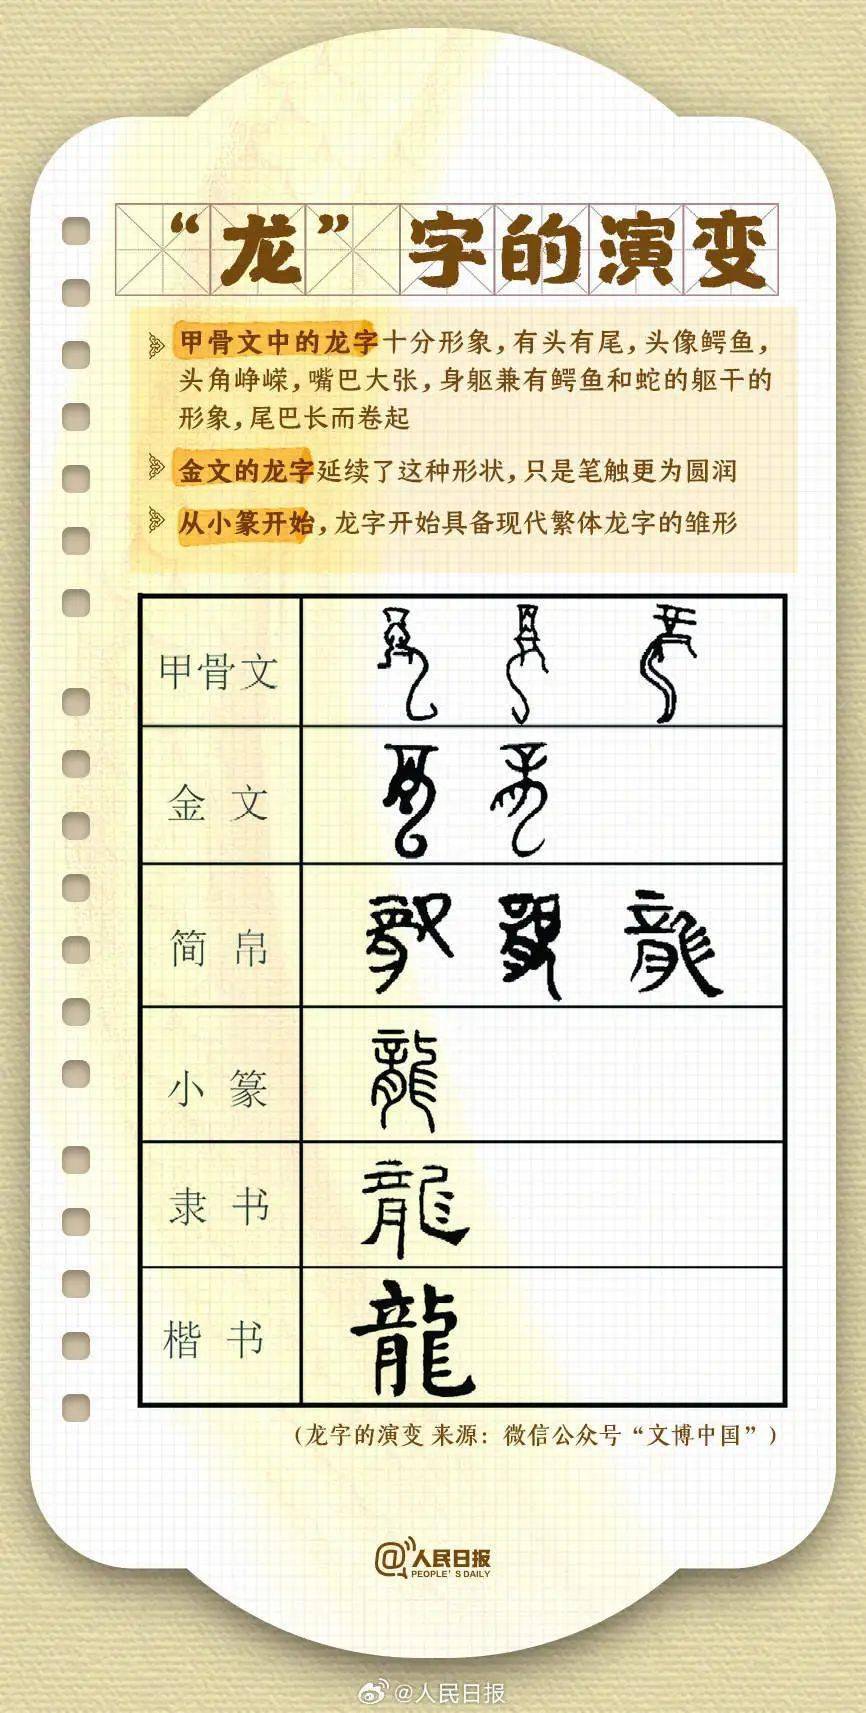 “龙”字的演变
甲骨文中的龙字十分形象,有头有尾,头像鳄鱼,
头角峥嵘,嘴巴大张,身躯兼有鳄鱼和蛇的躯干的
形象,尾巴长而卷起
金文的龙字延续了这种形状,只是笔触更为圆润
从小篆开始,龙字开始具备现代繁体龙字的雏形
甲骨文
金文
简帛 龍
小篆 龍
隶书 龍
楷书 龍
(龙字的演变 来源:微信公众号“文博中国”)
@人民日报
PEOPLE'S DAILY
@人民日报